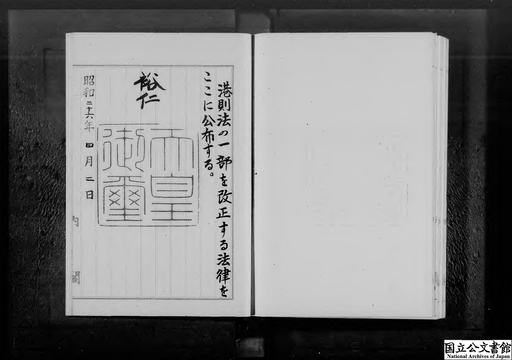 港則法の一部を改正する法律を
ここに公布する。
裕仁
天皇
御璽
昭和三十六年四月三日
内閣
国立公文書館
National Archives of Japan